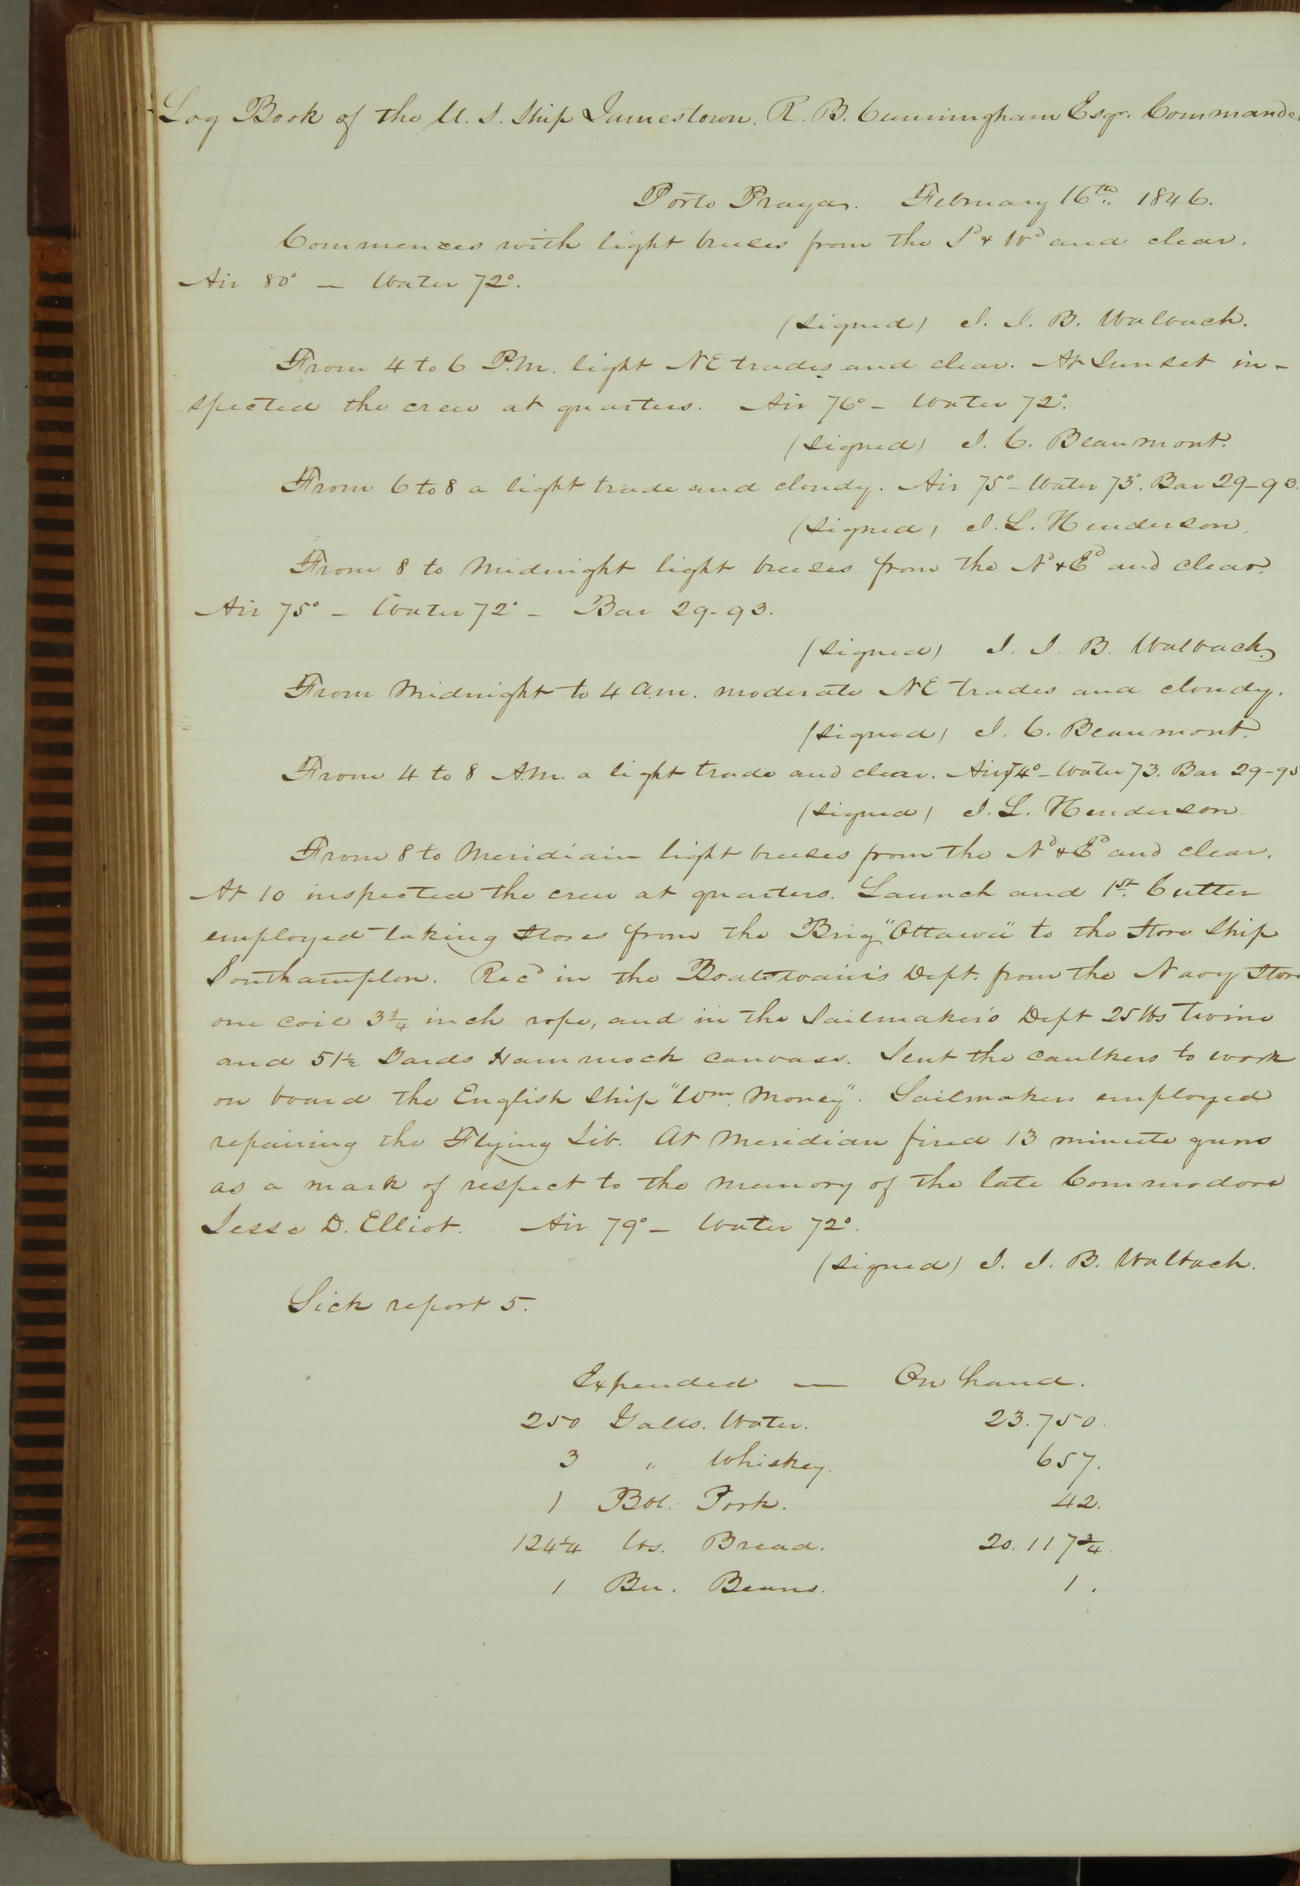 Log Book of the U. S. Ship Jamestown. R. B. Cunningham Esqr. Commander
Porto Praya. February 16th. 1846.
Commences with light breezes from the Sd & Wd and clear.
Air 80° — Water 72°.
(signed) J. J. B. Walbach.
From 4 to 6 P.M. light NE trades and clear. At Sunset in-
spected the crew at quarters. Air 76° - Water 72°.
(signed) J. C. Beaumont.
From 6 to 8 a light trade and cloudy. Air 75° - Water 73°. Bar 29-90.
(signed) J. L. Henderson.
From 8 to Midnight light breezes from the Nd & Ed and clear.
Air 75° - Water 72° - Bar 29-93.
(signed) J. J. B. Walbach.
From Midnight to 4 a.m. moderate NE trades and cloudy.
(signed) J. C. Beaumont.
From 4 to 8 A.M. a light trade and clear. Air 74° - Water 73. Bar 29-95
(signed) J. L. Henderson.
From 8 to Meridiain light breezes from the Nd & Ed and clear.
At 10 inspected the crew at quarters. Launch and 1st. Cutter
employed taking stores from the Brig "Ottawa" to the Store Ship
Southampton. Recd in the Boatswain's Dept. from the Navy Store
one coil 3 3/4 inch rope, and in the Sailmaker's Dept 25 lbs Twine
and 51 1/2 Yards Hammock canvass. Sent the caulkers to work
on board the English Ship "Wm. Money". Sailmakers employed
repairing the Flying Jib. At Meridian fired 13 minute guns
as a mark of respect to the memory of the late Commodore
Jesse D. Elliot. Air 79° - Water 72°.
(signed) J. J. B. Walbach.
Sick report 5.
Expended — On hand.
250 Galls. Water. 23.750.
3 " Whiskey. 657.
1 Bbl. Pork. 42.
124 1/4 lbs. Bread. 20.117 3/4.
1 Bu. Beans. 1.